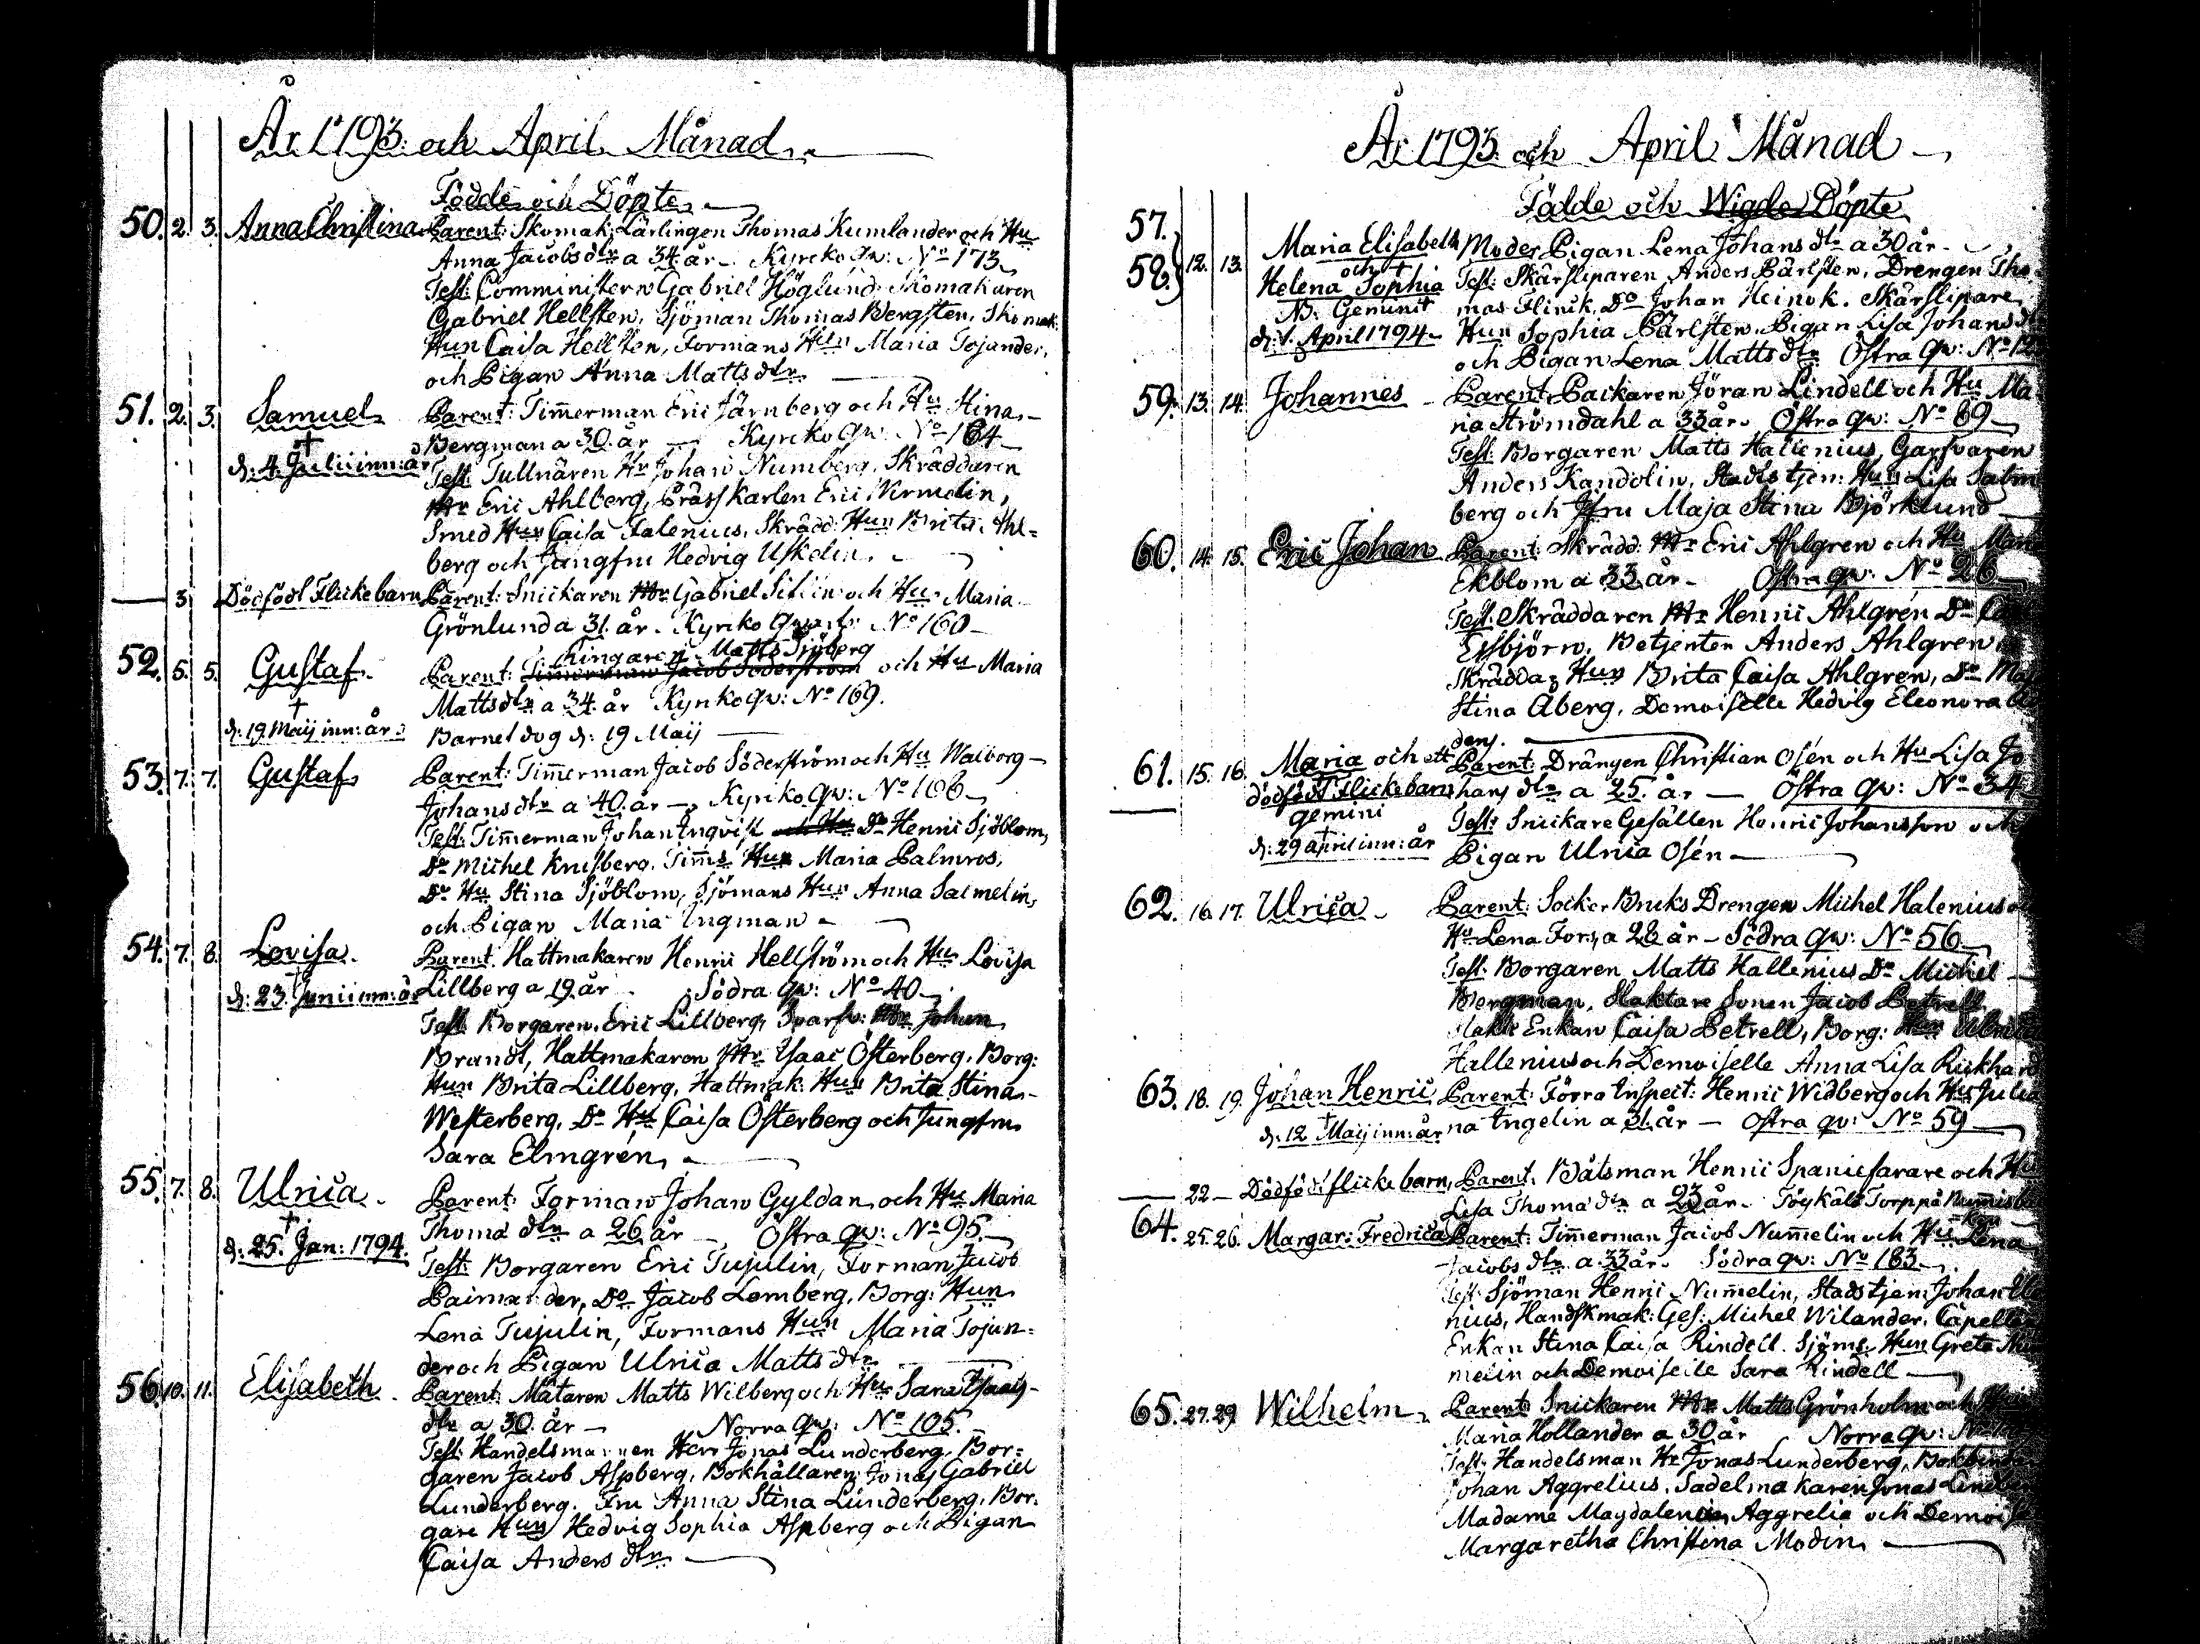 År 1793. och April Månad.
Födde och Döpte
50. 2. 3. Anna Christina Parent: Skomak: Lärlingen Thomas Kumlander och Hu
Anna Jacobs dtr a 34 år. Kyrko qv: No 173.
Test: Comministern Gabriel Höglund. Skomakaren
Gabriel Hellsten, Sjöman Thomas Bergsten, Skomak:
Hun Caisa Hellsten, Formans Hun Maria Tojander,
och Pigan Anna Matts dtr
51. 2. 3. Samuel Parent: Timerman Eric Järnberg och Hu Stina
† Bergman a 30. år Kyrko qv: No 164
d: 4. Julii inn: år Test: Tullnären Hr Johan Numberg, Skräddaren
Mr Eric Ahlberg, Eric
Smed Hun Caisa Falenius, Skrädd: Hun Brita Ahl=
berg och Jungfru Hedvig Uskelin.
3. Dödfödt Flickebarn Parent: Snickaren Mr Gabriel och Hu Maria
Grönlund a 31. år. Kyrko No 160
Matts Sjöberg
52. 5. 5. Gustaf Parent: Timerman Jacob Söderström och Hu Maria
† Matts dtr a 34. år Kyrko qv: No 169.
d: 19 Maij inn: år Barnet dog d: 19 Maij
53. 7. 7. Gustaf Parent: Timerman Jacob Söderström och Hu Walborg
Johans dtr a 40. år Kyrko qv: No 106
Test: Timerman Johan Inqvist och Hu Do Henric Sjöblom,
Do Michel Tims Hun Maria Palmros,
Do Hu Stina Sjöblom, Sjömans Hun Anna Salmelin,
och Pigan Maria Ingman
54. 7. 8. Lovisa. Parent. Hattmakaren Henric Hellström och Hu Lovisa
d: 23. Junii inn: år Lillberg a 19. år Södra qv: No 40
Test: Borgaren Eric Lillberg, Mr Johan
Brandt, Hattmakaren Mr Ysaac Österberg, Borg:
Hun Brita Lillberg, Hattmak: Hun Brita Stina
Westerberg, Do Hu Caisa Österberg och Jungfru
Sara Elmgrén.
55. 7. 8. Ulrica Parent: Forman Johan Gyldan och Hu Maria
† Thomæ dtr a 26 år Östra qv: No 95.
d: 25. Jan: 1794. Test: Borgaren Eric Tujulin, Forman Jacob
Do Jacob Lemberg, Borg: Hun
Lena Tujulin, Formans Hun Maria Tojan=
der och Pigan Ulrica Matts dtr
56. 10. 11. Elisabeth Parent: Mätaren Matts Wilberg och Hu Sara Ysaacs
dtr a 30. år Norra qv: No 105.
Test: Handelsmannen Herr Jonas Lunderberg, Bor=
garen Jacob Aspberg, Bokhållaren Jonas Gabriel
Lunderberg. Fru Anna Stina Lunderberg, Bor:
gare Hun Hedvig Sophia Aspberg och Pigan
Caisa Anders dtr
År 1793. och April Månad
Födde och Wigde Döpte
57. Maria Elisabeth Moder Pigan Lena Johans dtr a 30 år.
58. 12. 13. och † Test: Skärsliparen Anders Pärlsten, Drengen Tho
Helena Sophia mas Flinck, Do Johan Heinok. Skärslipare
N: Gemini †
d: 1. April 1794 Hun Sophia Pärlsten. Pigan Lisa Johans dtr
och Pigan Lena Matts dtr Östra qv: No 12
59. 13. 14. Johannes Parent: Packaren Jöran Lindell och Hu Ma
ria Strömdahl a 33 år. Östra qv: No 69
Test: Borgaren Matts Hallenius, Garfvaren
Anders Kandolin, Stadstjen: Hun Lisa Salm
berg och Jfru Maja Stina Björklund
60. 14. 15. Eric Johan Parent: Skrädd: Mr Eric Ahlgren och Hu
Ekblom a 33 år. Östra qv: No 26
Test: Skräddaren Mr Henric Ahlgrén Do
Essbjörn. Betjenten Anders Ahlgren
Skrädda: Hun Brita Caisa Ahlgren, Do
Stina Åberg, Demoiselle Hedvig Eleonora
dens.
61. 15. 16. Maria och ett Parent: Drängen Christian Osén och Hu Lisa Jo
dödfödt Flickebarn hans dtr a 25. år Östra qv: No 34
gemini Test: Snickare Gesällen Henric Johansson
†
d: 29 April inn: år Pigan Ulrica Osén
62. 16. 17. Ulrica Parent: Socker Bruks Drengen Michel Halenius
Hu Lena Fors, a 28 år Södra qv: No 56
Test: Borgaren Matts Hallenius Do Michel
Bergman, Slaktare Sonen Jacob Petrell
Slakt: Enkan Caisa Petrell, Borg: Hun
Hallenius och Demoiselle Anna Lisa
63. 18. 19. Johan Henric Parent: Förra Inspect: Henric Widberg och Hu Julia
d: 12 Maij inn: år na Ingelin a 31. år Östra qv: No 59
22 Dödfödt flickebarn, Parent: Båtsman Henric Spaniefarare och Hu
Lisa Thomæ dtr a 23 år. Torp på
64. 25. 26. Margar: Fredrica Parent: Timerman Jacob Numelin och Hu Lena
Jacobs dtr a 33 år. Södra qv: No 183
Test: Sjöman Henric Numelin, Stadstjen: Johan
nius, Handskmak: Ges: Michel Wilander. Capellans
Enkan Stina Caisa Rindell. Sjöms Hun Greta
melin och Demoiselle Sara Rindell
65. 27. 29 Wilhelm Parent: Snickaren Mr Matts Grönholm och
Maria Hollander a 30 år Norra qv:
Test: Handelsman Hr Jonas Lunderberg,
Johan Aggrelius. Sadelmakaren Jonas
Madame Magdalena Aggrelia och
Margaretha Christina Modin